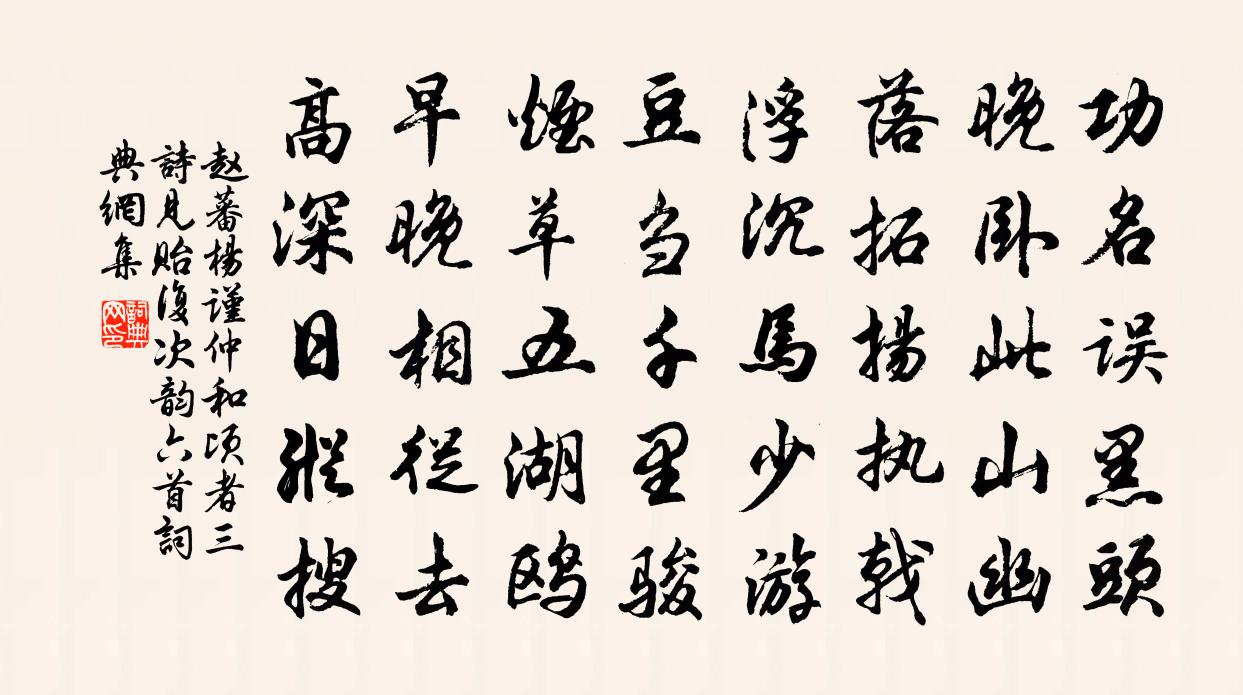 功名误黑頭
晚卧此山幽
落拓揚执戟
浮沉馬少游
豆刍千里骏
煙草五湖鸥
早晚相從去
高深日縱搜
赵蕃楊謹仲和頃者三
詩見貽復次韵六首詞
典網集
詞典网印